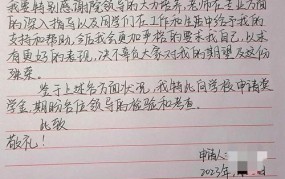 我要特别感谢院领导的大力培养，老师在专业方面
的深入指导以及同学们在工作和生活中给予我的
支持和帮助。今后我会更加严格的要求我自己，以求
有更好的表现，决不辜负大家对我的期望及这份
殊荣。
鉴于上述各方面状况，我特此向学校申请奖
学金，期盼各位领导的检验和考查。
此致
敬礼！
申请人：
2023年